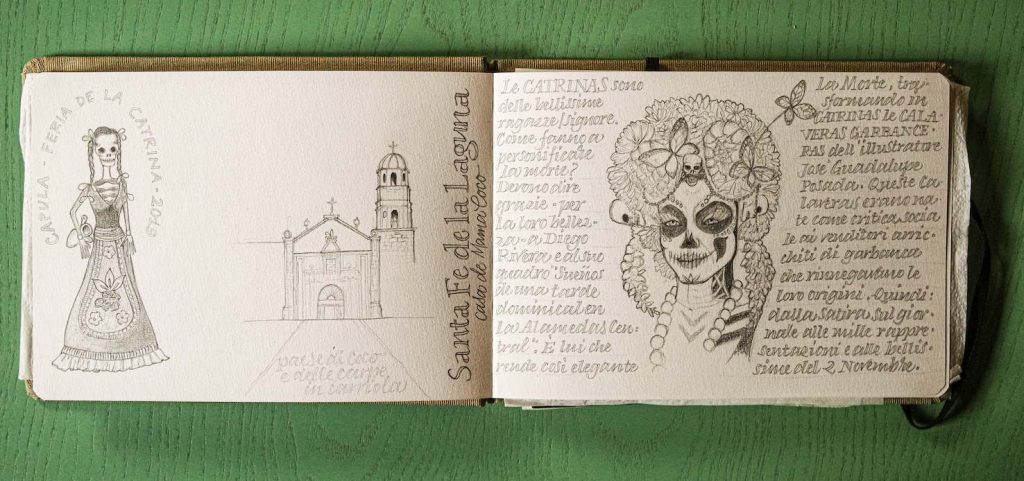 CAPULA - FERIA DE LA CATRINA - 2019
paese di coco
e delle carpe
in carriola
Santa Fe de la Laguna
Cala de Mama Coco
Le CATRINAS sono
delle bellissime
ragazze/signore.
Come fanno a
personificare
la morte?
Devono dire
grazie - per
la loro bellez-
za - a Diego
Rivera e al suo
quadro "Sueños
de una tarde
dominical en
la Alamedas Cen-
tral". È lui che
rende così elegante
la Morte, tra-
sformando in
CATRINAS le CALA-
VERAS GARBANCE-
RAS dell'illustratore
Jose Guadalupe
Posada. Queste Ca-
laveras erano na-
te come critica socia-
le ai venditori arric-
chiti di garbanca
che rinnegavano le
loro origini. Quindi:
dalla satira sul gior-
nale alle mille rappre-
sentazioni e alle bellis-
sime del 2 Novembre.